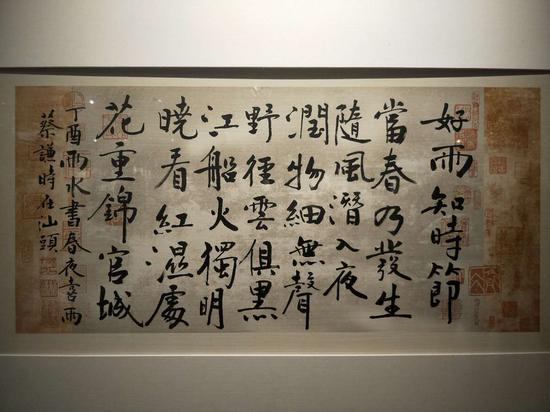 好雨知時節
當春乃發生
隨風潛入夜
潤物細無聲
野徑雲俱黑
江船火獨明
曉看紅濕處
花重錦官城
丁酉雨水書春夜喜雨
蔡謙時在汕頭